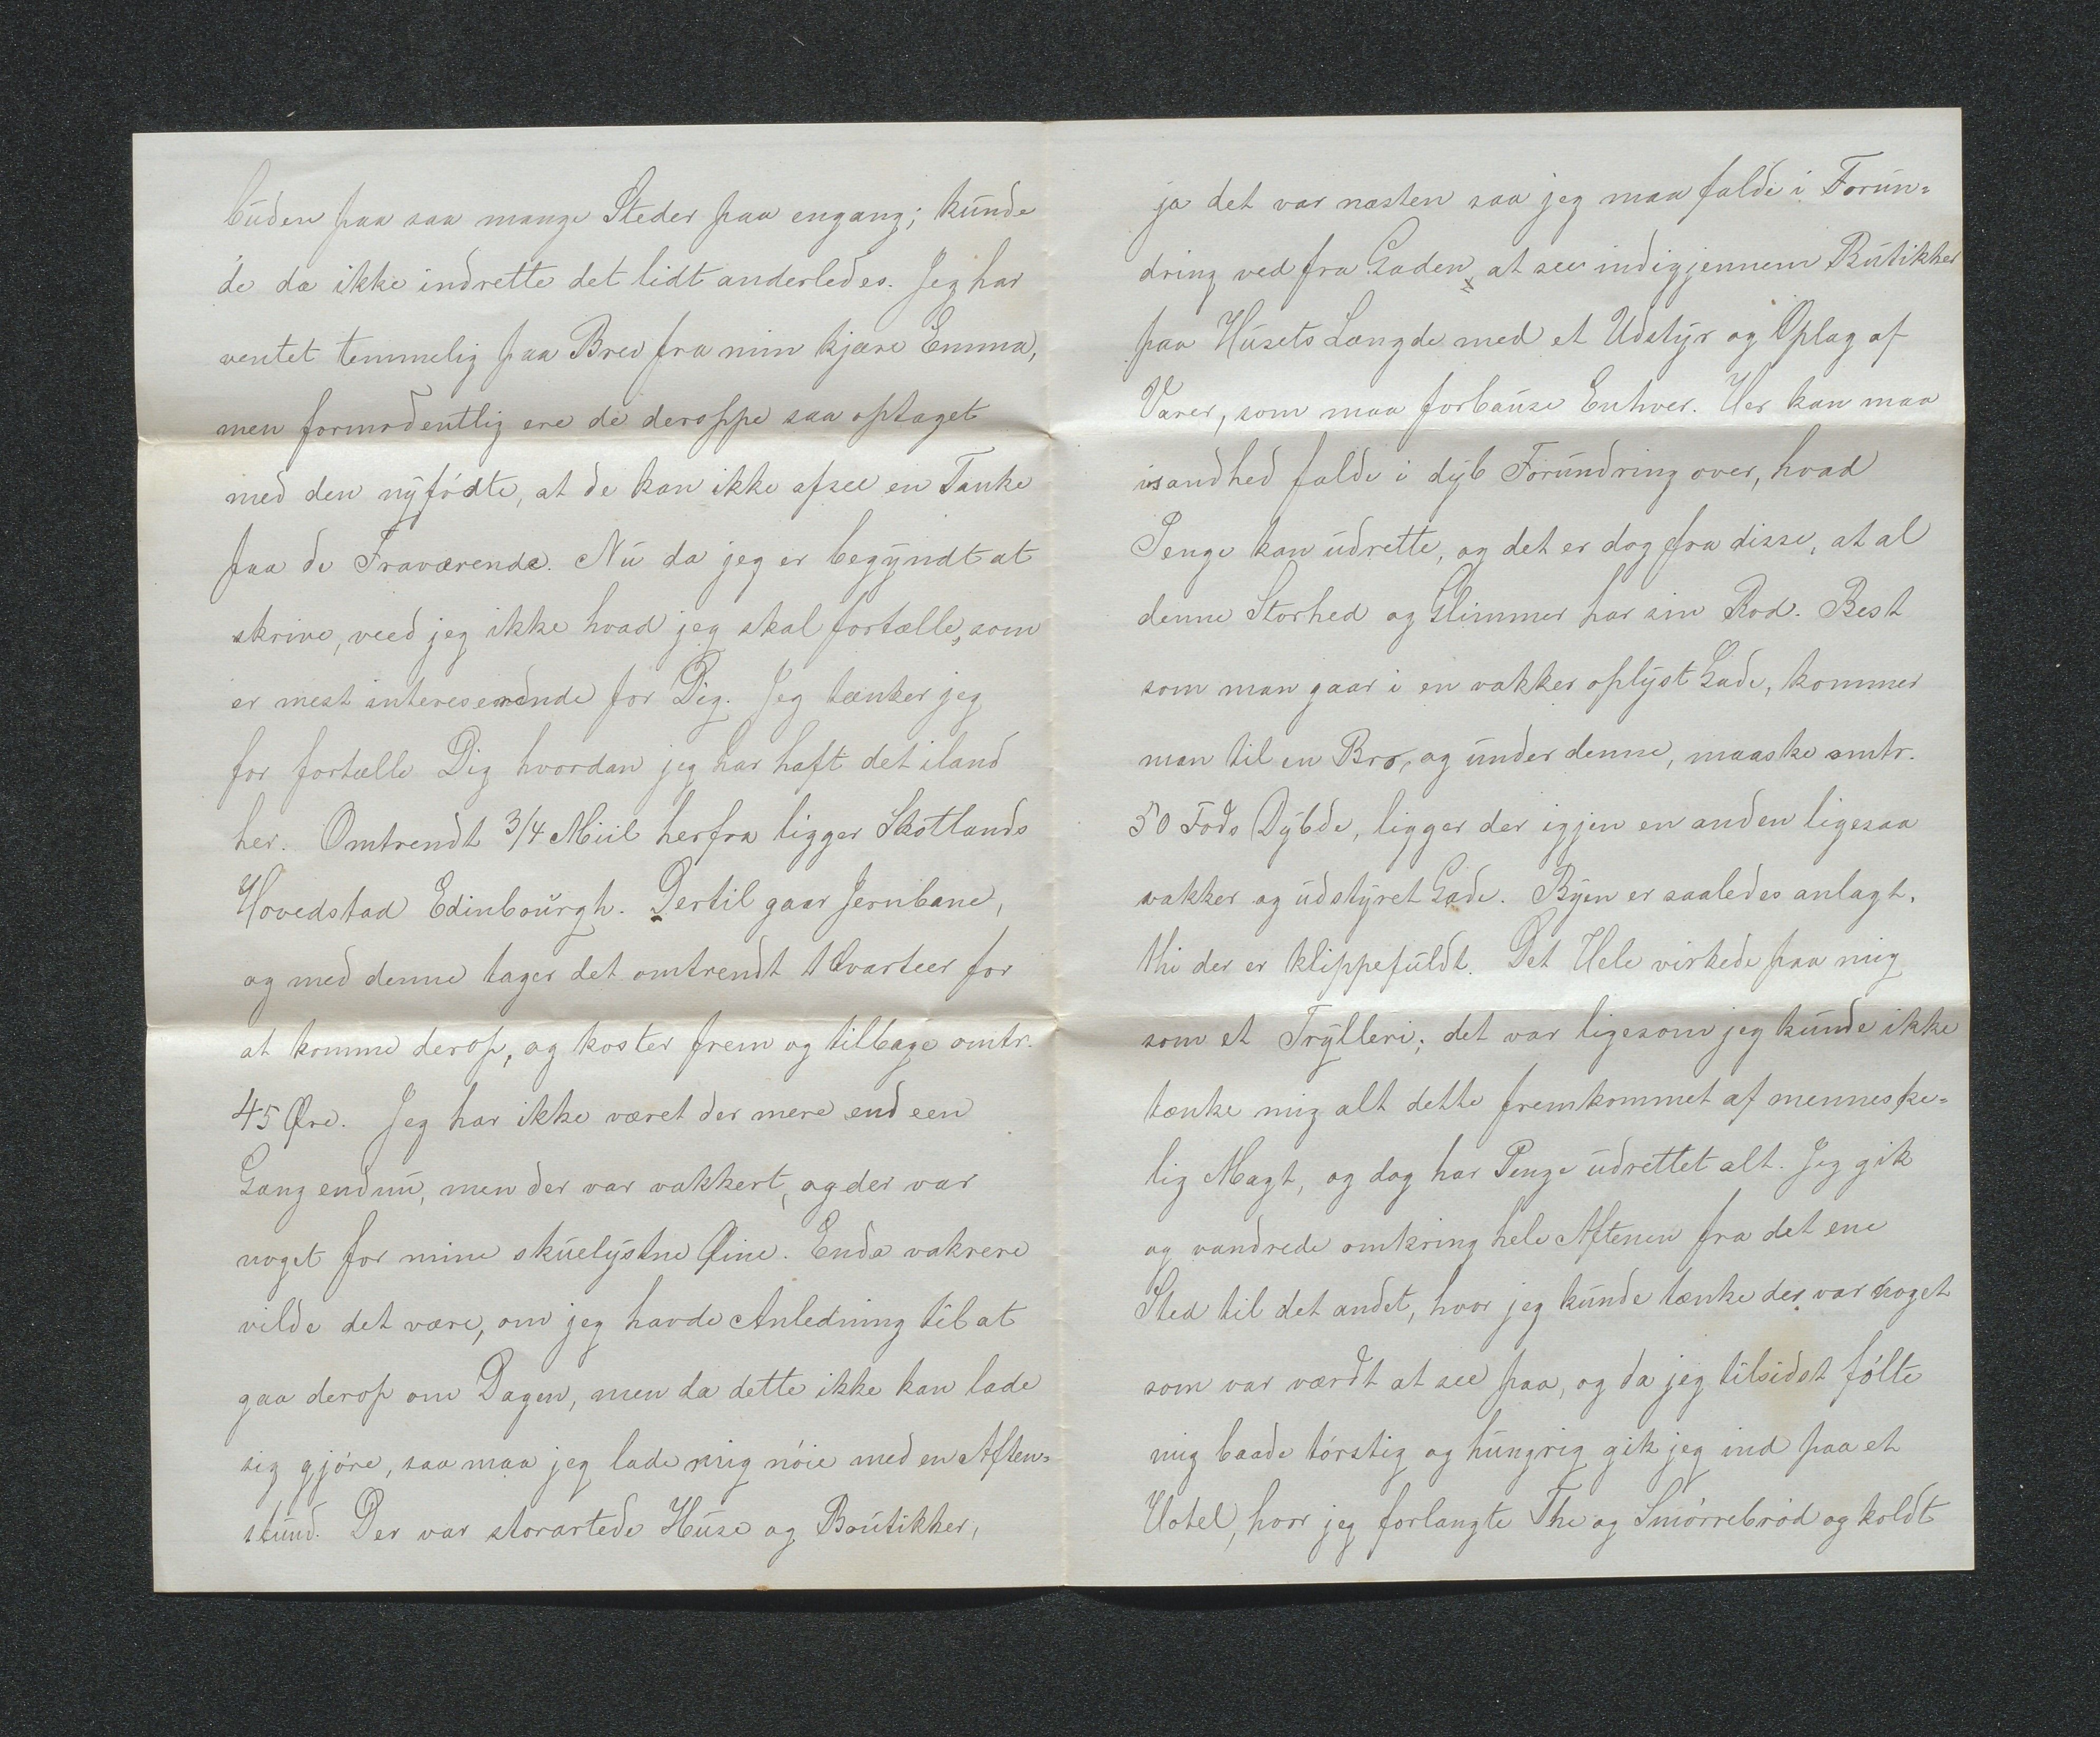 buden paa saa mange Steder paa engang; kunde
de da ikke indrette det lidt anderledes. Jeg har
ventet temmelig paa Brev fra min kjære Emma,
men formodentlig ere de deroppe saa optaget
med den nyfödte, at de kan ikke afsee en Tanke
paa de Fraværende. Nu da jeg er begyndt at
skrive, veed jeg ikke hvad jeg skal fortælle, som
er mest intereserende for Dig. Jeg tænker jeg
for fortælle Dig hvordan jeg har haft det iland
her. Omtrendt 3/4 Miil herfra ligger Skotlands
Hovedstad Edinbourgh. Dertil gaar Jernbane,
og med denne tager det omtrendt 1 Qvarteer for
at komme derop, og koster frem og tilbage omtr.
45 Øre. Jeg har ikke været der mere end een
Gang endnu, men der var vakkert, og der var
noget for mine skuelystne Øine. Enda vakrere
vilde det være, om jeg havde Anledning til at
gaa derop om Dagen, men da dette ikke kan lade
sig gjöre, saa maa jeg lade mig nöie med en Aften=
stund. Der var storartede Huse og Boutikker,
ja det var næsten saa jeg maa falde i Forun=
dring ved fra Gaden, at see indigjennem Butikker
paa Husets Længde med et Udstyr og Oplag af
Varer, som maa forbause Enhver. Her kan maa
isandhed falde i dyb Forundring over, hvad
Penge kan udrette, og det er dog fra disse, at al
denne Storhed og Glimmer har sin Rod. Best
som man gaar i en vakker oplyst Gade, kommer
man til en Bro, og under denne, maaske omtr.
50 Fods Dybde, ligger der igjen en anden ligesaa
vakker og udstyret Gade. Byen er saaledes anlagt,
thi der er klippefuldt. Det Hele virkede paa mig
som et Trylleri; det var ligesom jeg kunde ikke
tænke mig alt dette fremkommet af menneske=
lig Magt, og dog har Penge udrettet alt. Jeg gik
og vandrede omkring hele Aftenen fra det ene
Sted til det andet, hvor jeg kunde tænke der var noget
som var værdt at see paa, og da jeg tilsidst fölte
mig baade törstig og hungrig gik jeg ind paa et
Hotel, hvor jeg forlangte The og Smörrebröd og koldt